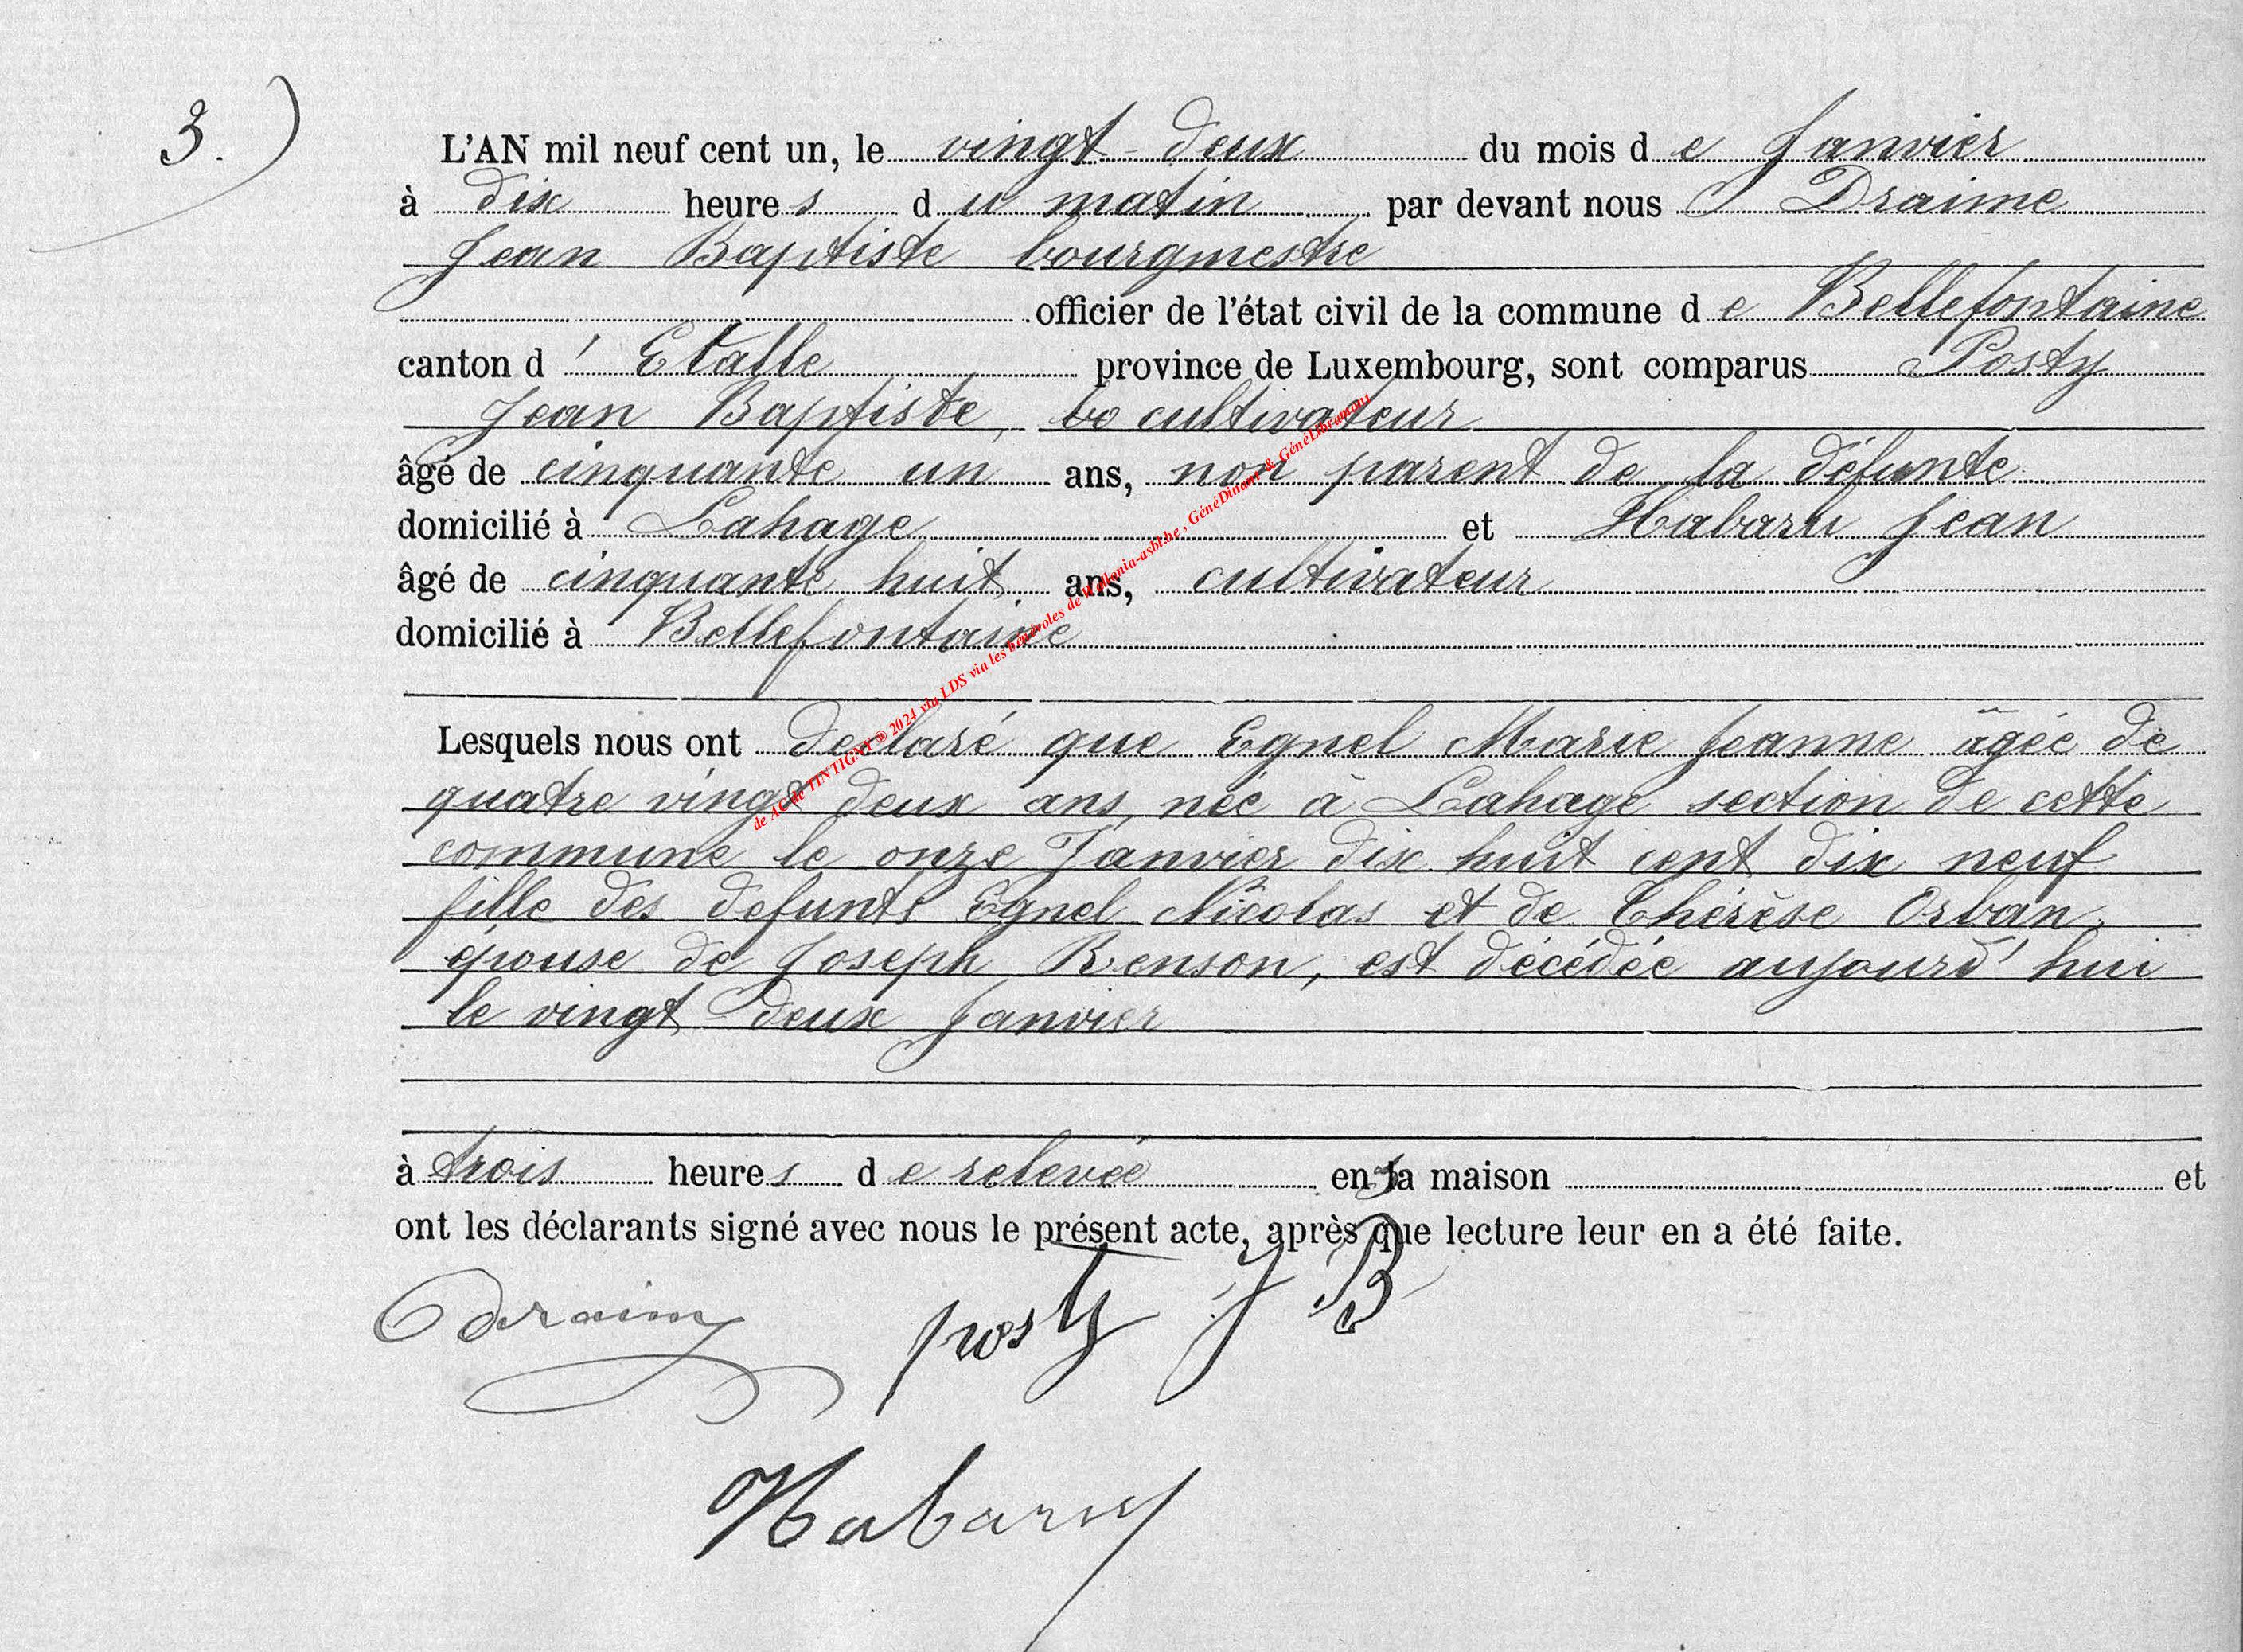 3.)
L'AN mil neuf cent un, le vingt-deux du mois de Janvier
à dix heures du matin par devant nous Draime
Jean Baptiste bourgmestre
officier de l'état civil de la commune de Bellefontaine
canton d'Etalle province de Luxembourg, sont comparus Posty
Jean Baptiste, bo cultivateur
âgé de cinquante un ans, non parent de la défunte
domicilié à Lahage et Habaru Jean
âgé de cinquante huit ans, cultivateur
domicilié à Bellefontaine
Lesquels nous ont declaré que Egnel Marie Jeanne âgée de
quatre vingt deux ans, née à Lahage section de cette
commune le onze Janvier dix huit cent dix neuf
fille des defunts Egnel Nicolas et de Thérèse Orban,
épouse de Joseph Renson, est décédée aujourd'hui
le vingt deux Janvier
à trois heures de relevée en sa maison et
ont les déclarants signé avec nous le présent acte, après que lecture leur en a été faite.
Draime posty J B
Habaru
de AC de TINTIGNY © 2024 via LDS via les bénévoles de Wallonia-asbl.be , GénéDinant & GénéLibramont